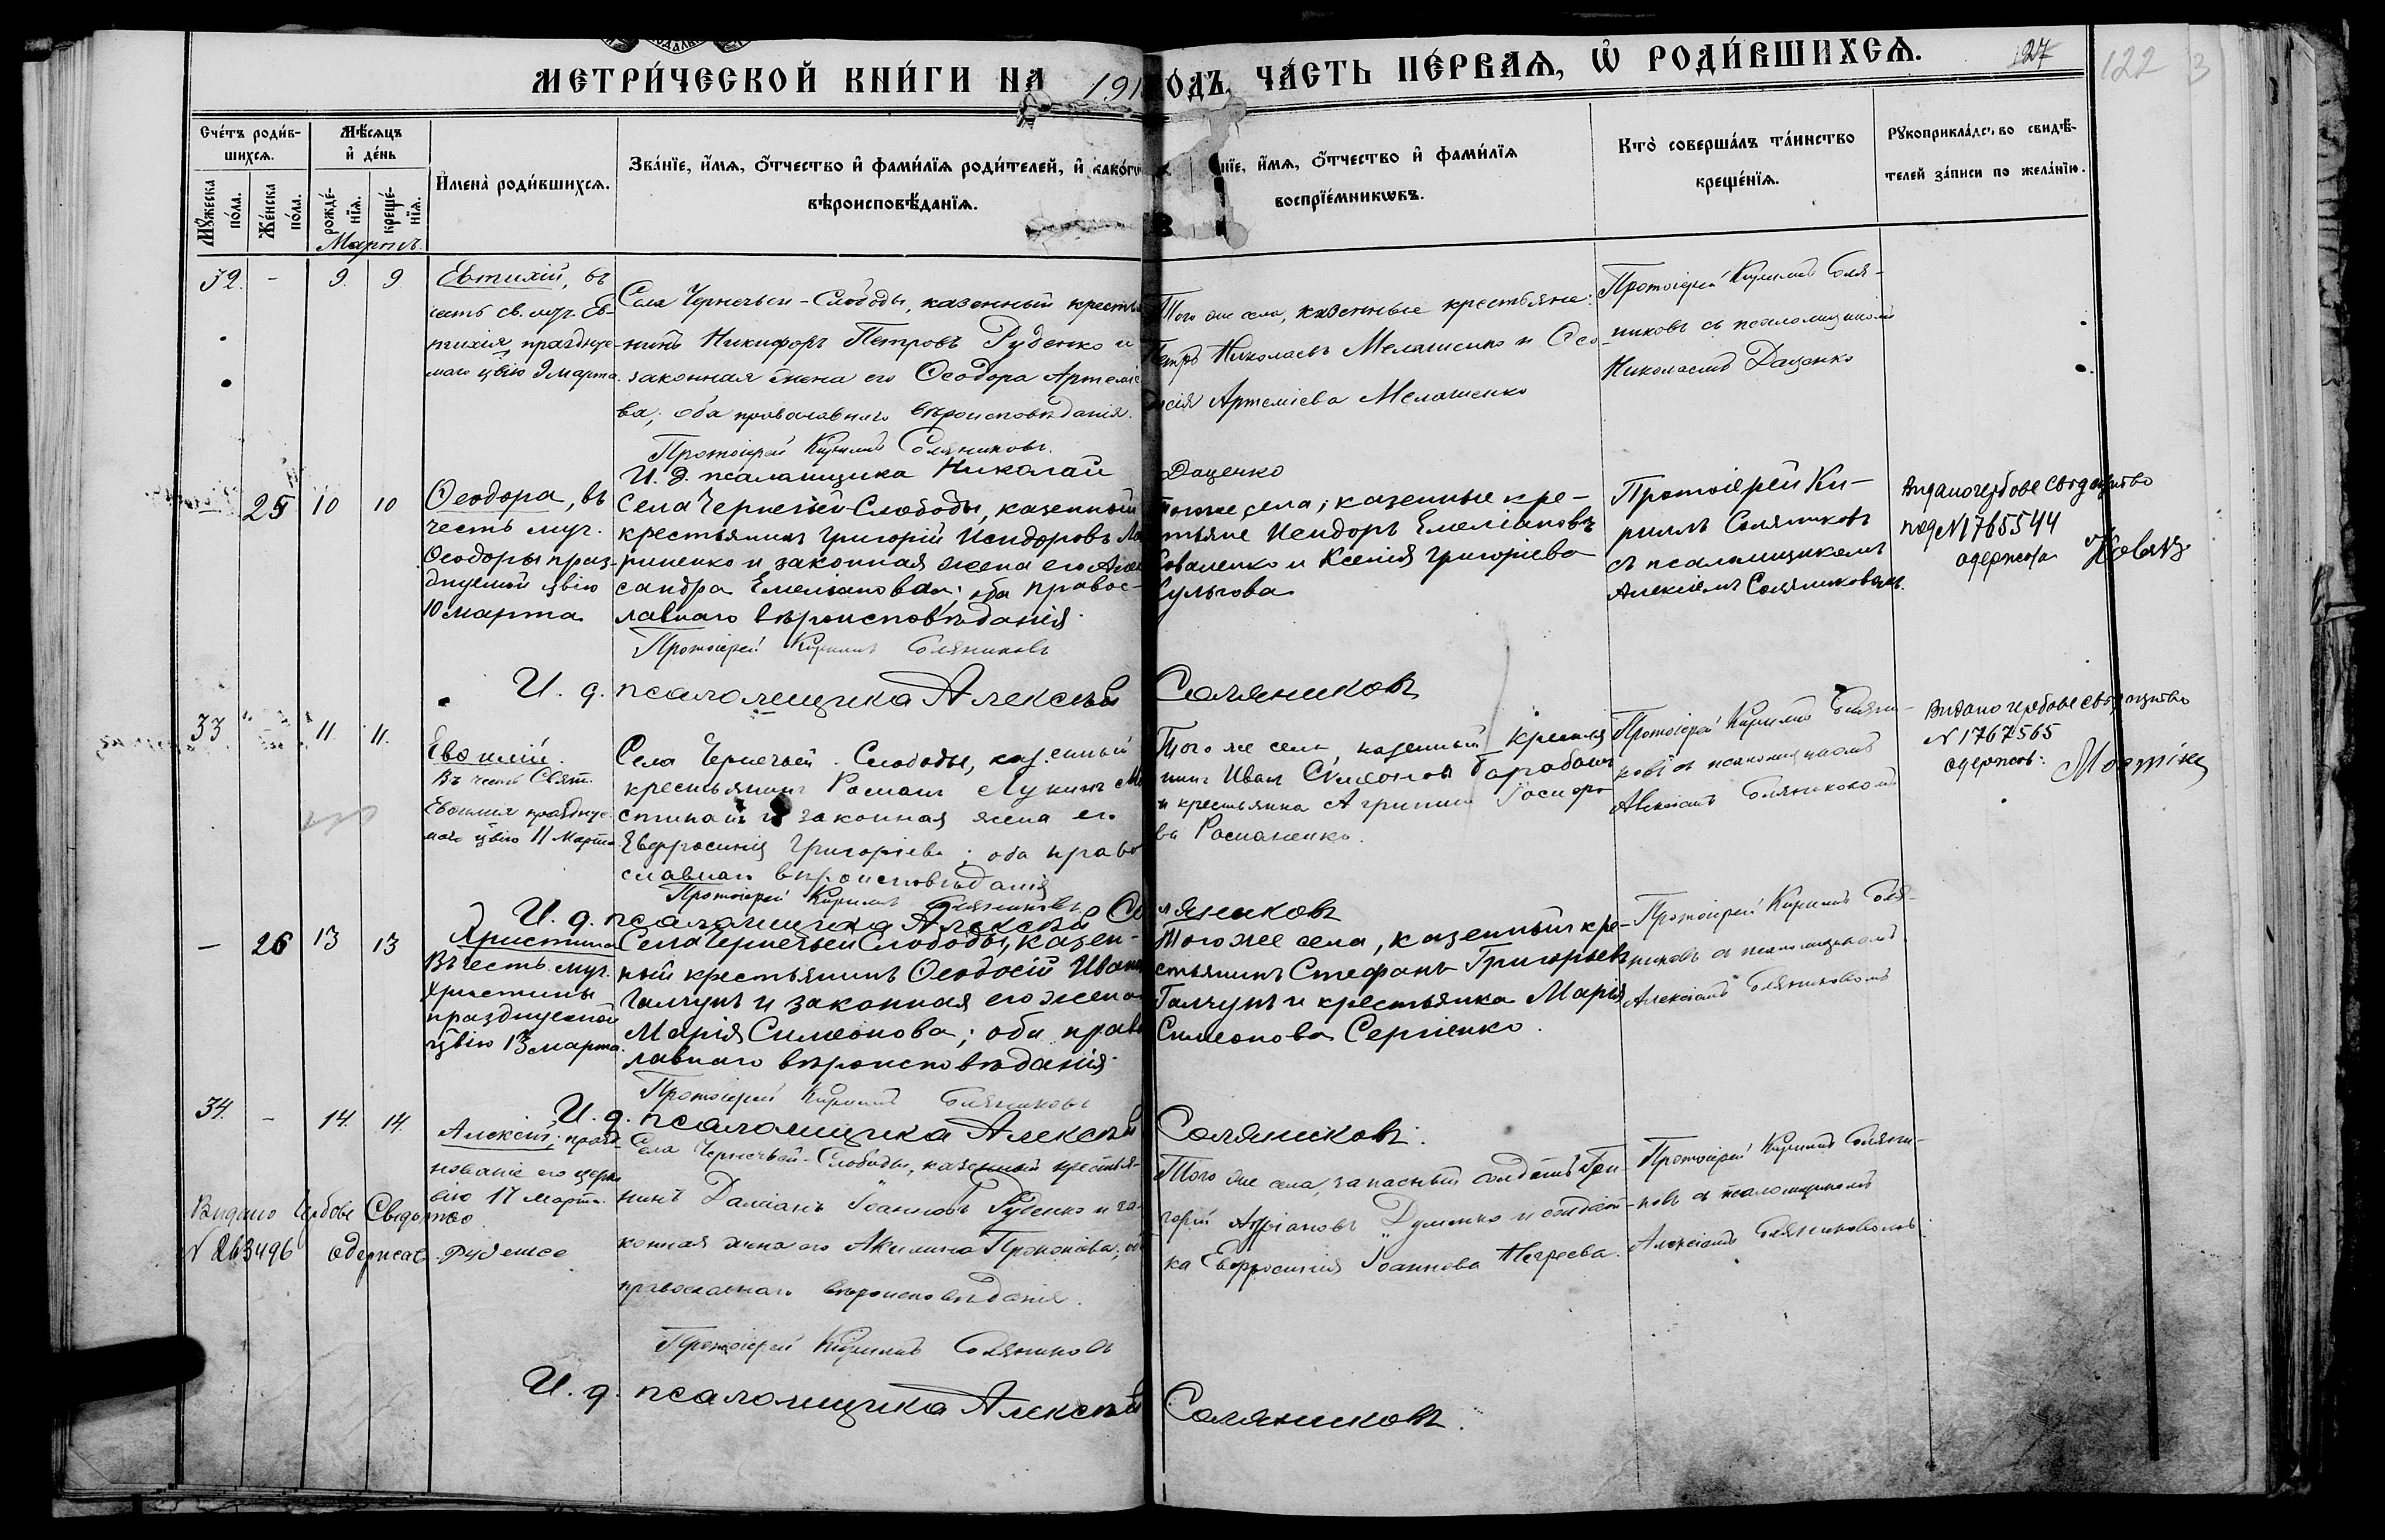 МЕТРИ́ЧЕСКОЙ КНИ́ГИ НА 191 ОДЪ, ЧА́СТЬ ПЕ́РВАЯ, Ѡ РОДИ́ВШИХСЯ.
27
122
3
Сче́тъ роди́в-
шихся.
Мѣ́сяцъ
и де́нь
Му́жеска по́ла.
Же́нска по́ла.
рожде́-
нїя.
креще́-
нїя.
Имена̀ роди́вшихся.
Зва́нїе, и́мя, о́тчество и фами́лїя роди́телей, и како́гѡ
вѣроисповѣ́данїя.
нїе, и́мя, о́тчество и фами́лїя
воспрїе́мникѡвъ.
Кто̀ соверша́лъ та́инство
креще́нїя.
Рукоприкла́дство свидѣ́-
телей за́писи по жела́нїю.
Мартъ.
32. - 9. 9
Евтихій, въ
честь св. муч. Ев-
тихія, праздную-
маго цвію 9 марта.
Села Чернечьей-Слободы, казенный крестья
нинъ Никифоръ Петровъ Руденко и
законная жена его Ѳеодора Артеміе
ва; оба православнаго вѣроисповѣданія.
Протоіерей Кириллъ Соляниковъ.
И. д. псаломщика Николай Даценко
Того же села, казенные крестьяне:
Петръ Николаевъ Мелашенко и Ѳео-
досія Артеміева Мелашенко
Протоіерей Кириллъ Соля-
никовъ съ псаломщикомъ
Николаемъ Даценко
— 25 10 10
Ѳеодора, въ
честь муч.
Ѳеодоры праз-
днуемой цвію
10 марта
Села Чернечьей-Слободы, казенный
крестьянинъ Григорій Исидоровъ
риненко и законная жена его Алек
сандра Емеліанова; оба правос-
лавнаго вѣроисповѣданія.
Протоіерей Кириллъ Соляниковъ
И. д. псаломщика Алексѣй Соляниковъ
тогоже села; казенные кре-
стьяне Исидоръ Емеліановъ
Коваленко и Ксенія Григоріева
Сулыгова
Протоіерей Ки-
риллъ Соляниковъ
съ псаломщикомъ
Алексіемъ Соляниковымъ.
Видано гербове свідоцтво
под N 1765544
одержала
33 11. 11.
Евѳимій.
Въ честь Свят.
Евѳимія праздную-
маго цвію 11 Марта
Села Чернечьей-Слободы, казенный
крестьянинъ Романъ Лукинъ Ма
стипанъ и законная жена его
Евфросинія Григоріева; оба право
славнаго вѣроисповѣданія
Протоіерей Кириллъ Соляниковъ
И. д. псаломщика Алексѣй Соляниковъ
Того же села казенный крестья
нинъ Иванъ Симеоновъ Барабашъ
и крестьянка Агрипина
ва Романенко.
Протоіерей Кириллъ Соляни-
ковъ съ псаломщикомъ
Алексіемъ Соляниковымъ
Видано гербове свідоцтво
N 1767565
одержав:
— 26 13 13
Христина
Въ честь муч.
Христины
празднуемой
цвію 13 марта.
Села Чернечьей Слободы, казен-
ный крестьянинъ Ѳеодосій Ивано
Галчунъ и законная его жена
Марія Симеонова; оба правос
лавнаго вѣроисповѣданія.
Протоіерей Кириллъ Соляниковъ
И. д. псаломщика Алексѣй Соляниковъ.
Того же села, казенный кре-
стьянинъ Стефанъ Григорьевъ
Галчунъ и крестьянка Марія
Симеонова Сергіенко.
Протоіерей Кириллъ Соля-
никовъ съ псаломщикомъ
Алексіемъ Соляниковымъ
34. - 14. 14.
Алексій; празд-
нованіе его церко
вію 17 марта.
Села Чернечьей-Слободы, казенный крестья-
нинъ Даміанъ Іоанновъ Руденко и за-
конная жена его Акилина Прокопіева; оба
православнаго вѣроисповѣданія.
Протоіерей Кириллъ Соляниковъ
И. д. псаломщика Алексѣй Соляниковъ.
Того же села, запасный солдатъ Гри-
горій Адріановъ Думенко и солдат-
ка Евфросинія Іоаннова Негреева.
Протоіерей Кириллъ Соляни-
ковъ съ псаломщикомъ
Алексіемъ Соляниковымъ.
Видано Гербове Свидотво
N 263496 одержав Руденко